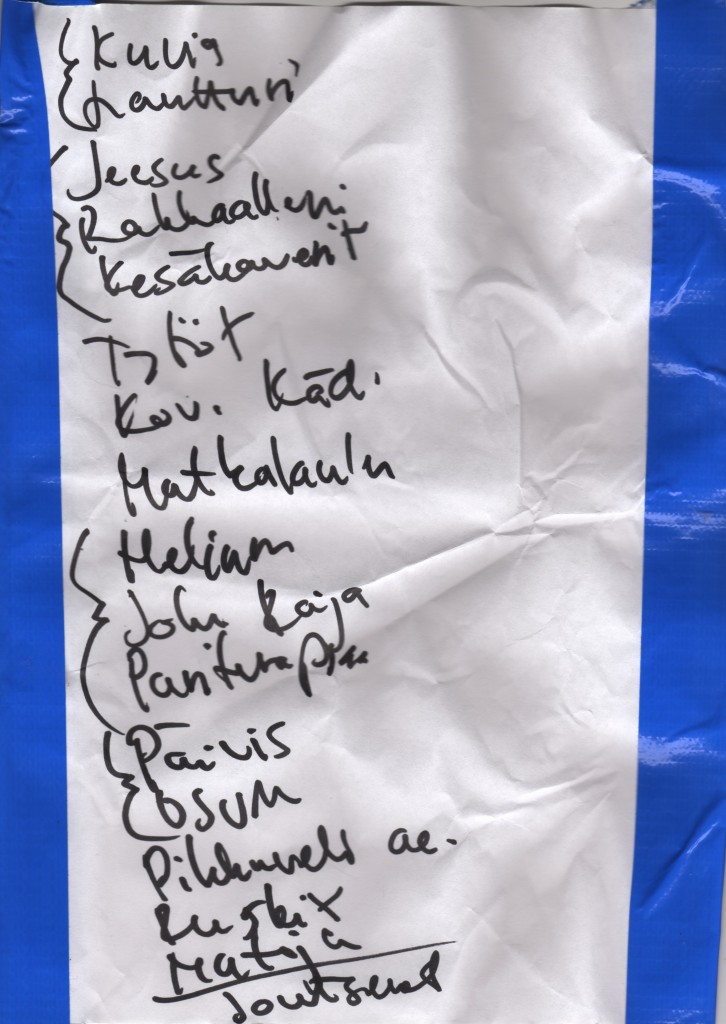 Kuvia
Lautturi
Jeesus
Rakkaalleni
Kesäkaverit
Tytöt
Kov. Käd.
Matkalaulu
Helium
John Kaija
Pariterapiu
Päivis
OSUM
Pikkuveli ae.
Matija
Joutsenet